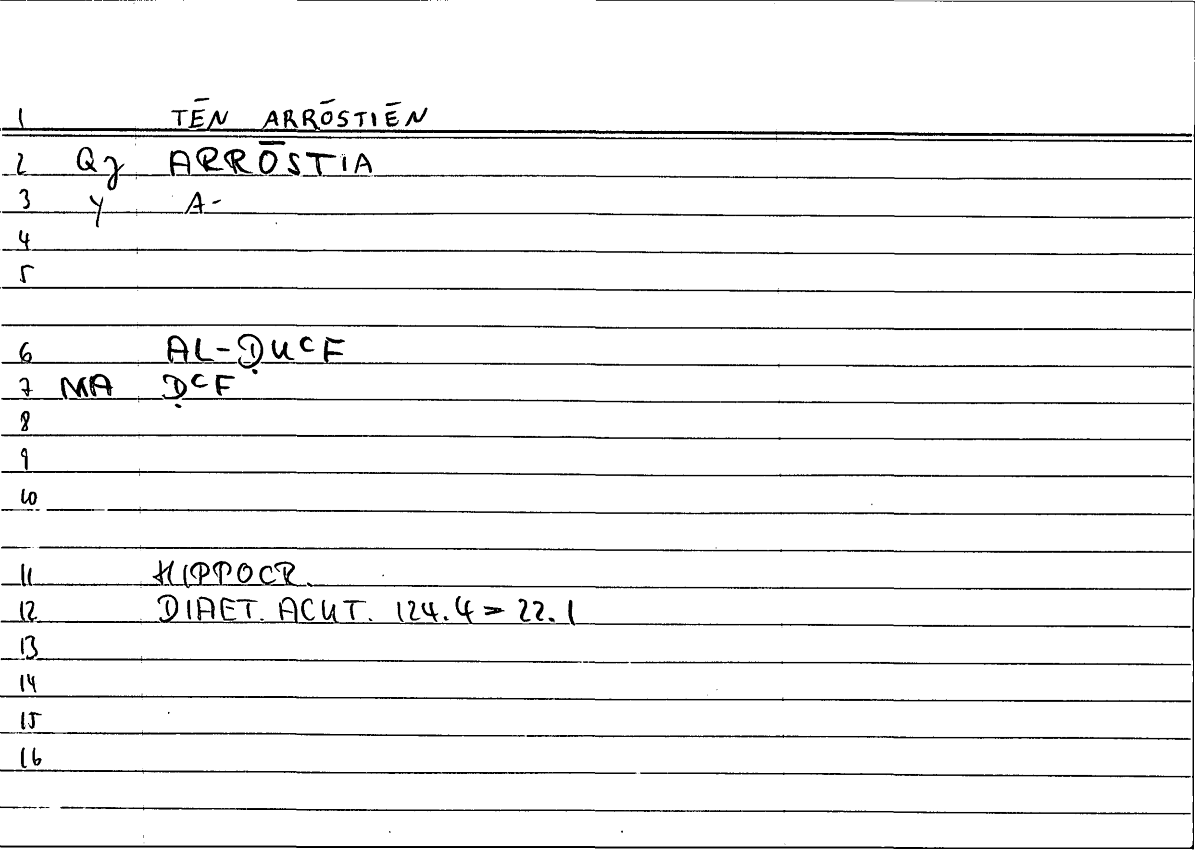 1 TĒN ARRŌSTIĒN
2 Qz ARRŌSTIA
3 Y A-
4
5
6 AL-ḌUCF
7 MA ḌCF
8
9
10
11 HIPPOCR.
12 DIAET. ACUT. 124.4 = 22.1
13
14
15
16